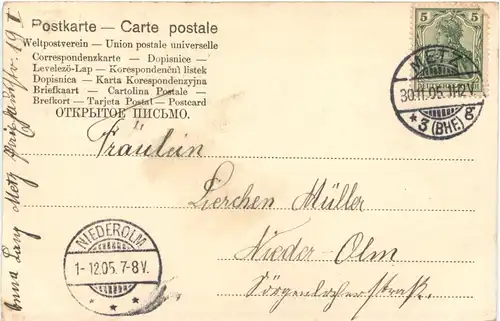 Postkarte — Carte postale
Weltpostverein — Union postale universelle
Correspondenzkarte — Dopisnice —
Levelező-Lap — Korespondenční listek
Dopisnica — Karta Korespondenzyjna
Briefkaart — Cartolina Postale —
Brefkort — Tarjeta Postal — Postcard
ОТКРЫТОЕ ПИСЬМО.
5 5
METZ
30.11.05.11-12V.
* 3 (BHF.) g
Fräulein
Lierchen Müller
Nieder-Olm
Sörgenlocherstraße
NIEDEROLM
1-12.05.7-8V.
* * *
Anna Lang Metz